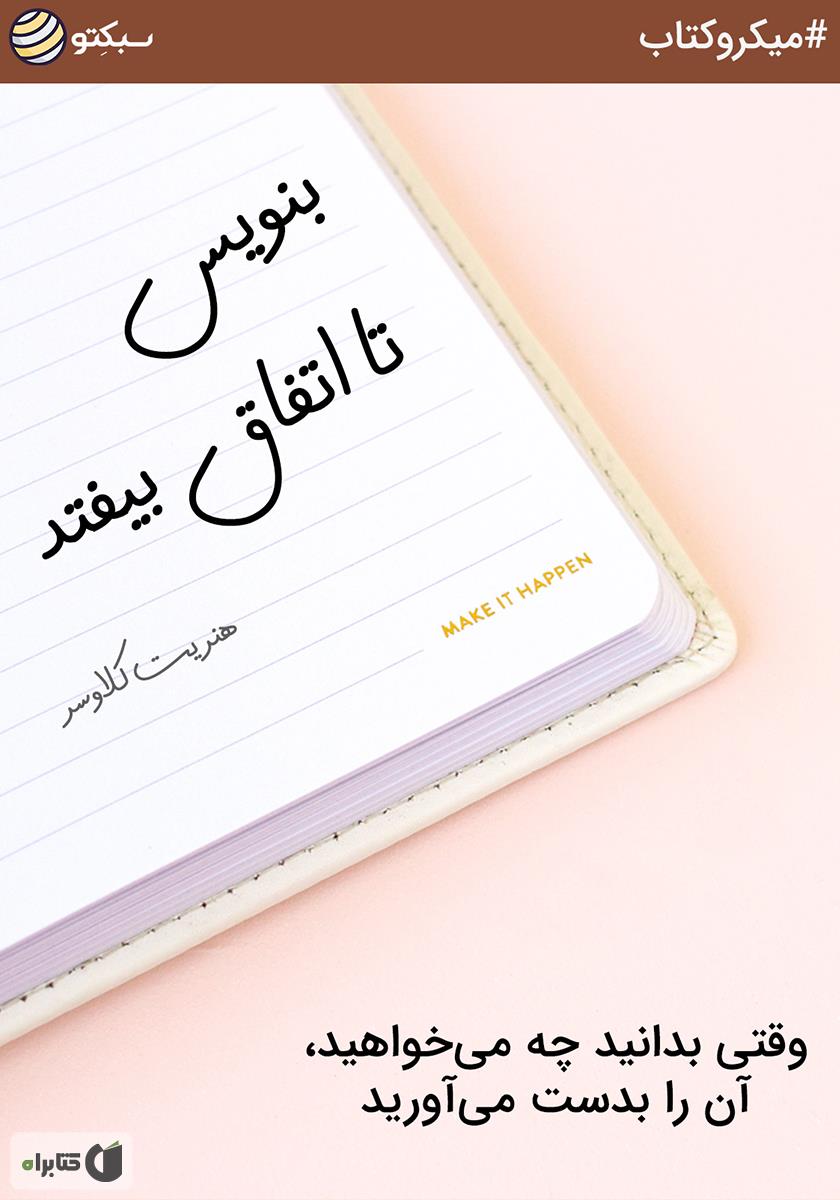 #میکروکتاب
سبکِتو
بنویس
تا اتفاق
بیفتد
MAKE IT HAPPEN
هنریت کلاوسر
وقتی بدانید چه می‌خواهید،
آن را بدست می‌آورید
کتابراه